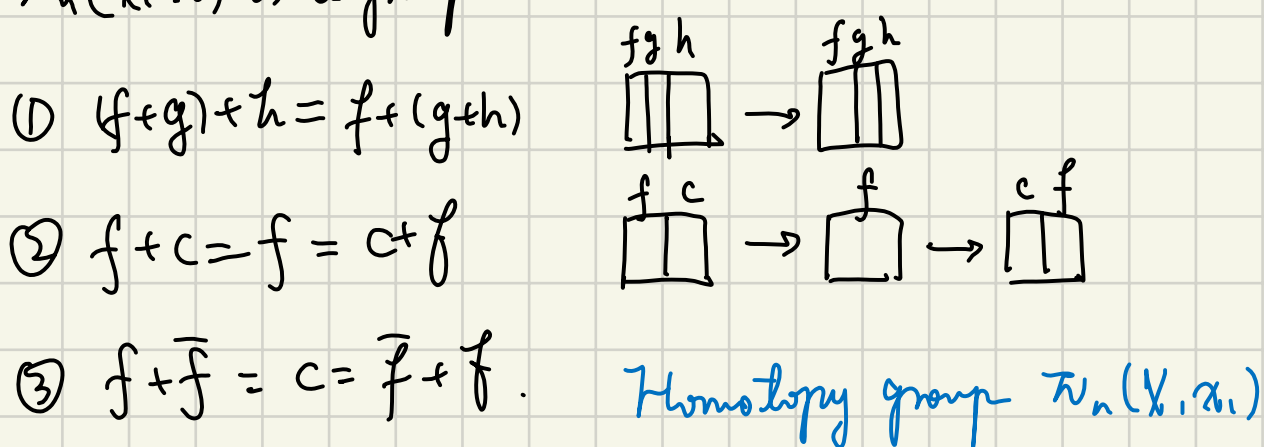 f g h f g h
① (f+g)+h = f+(g+h) →
f c f c f
② f + c = f = c + f → →
③ f + f̅ = c = f̅ + f . Homotopy group π_n(X, x_1)